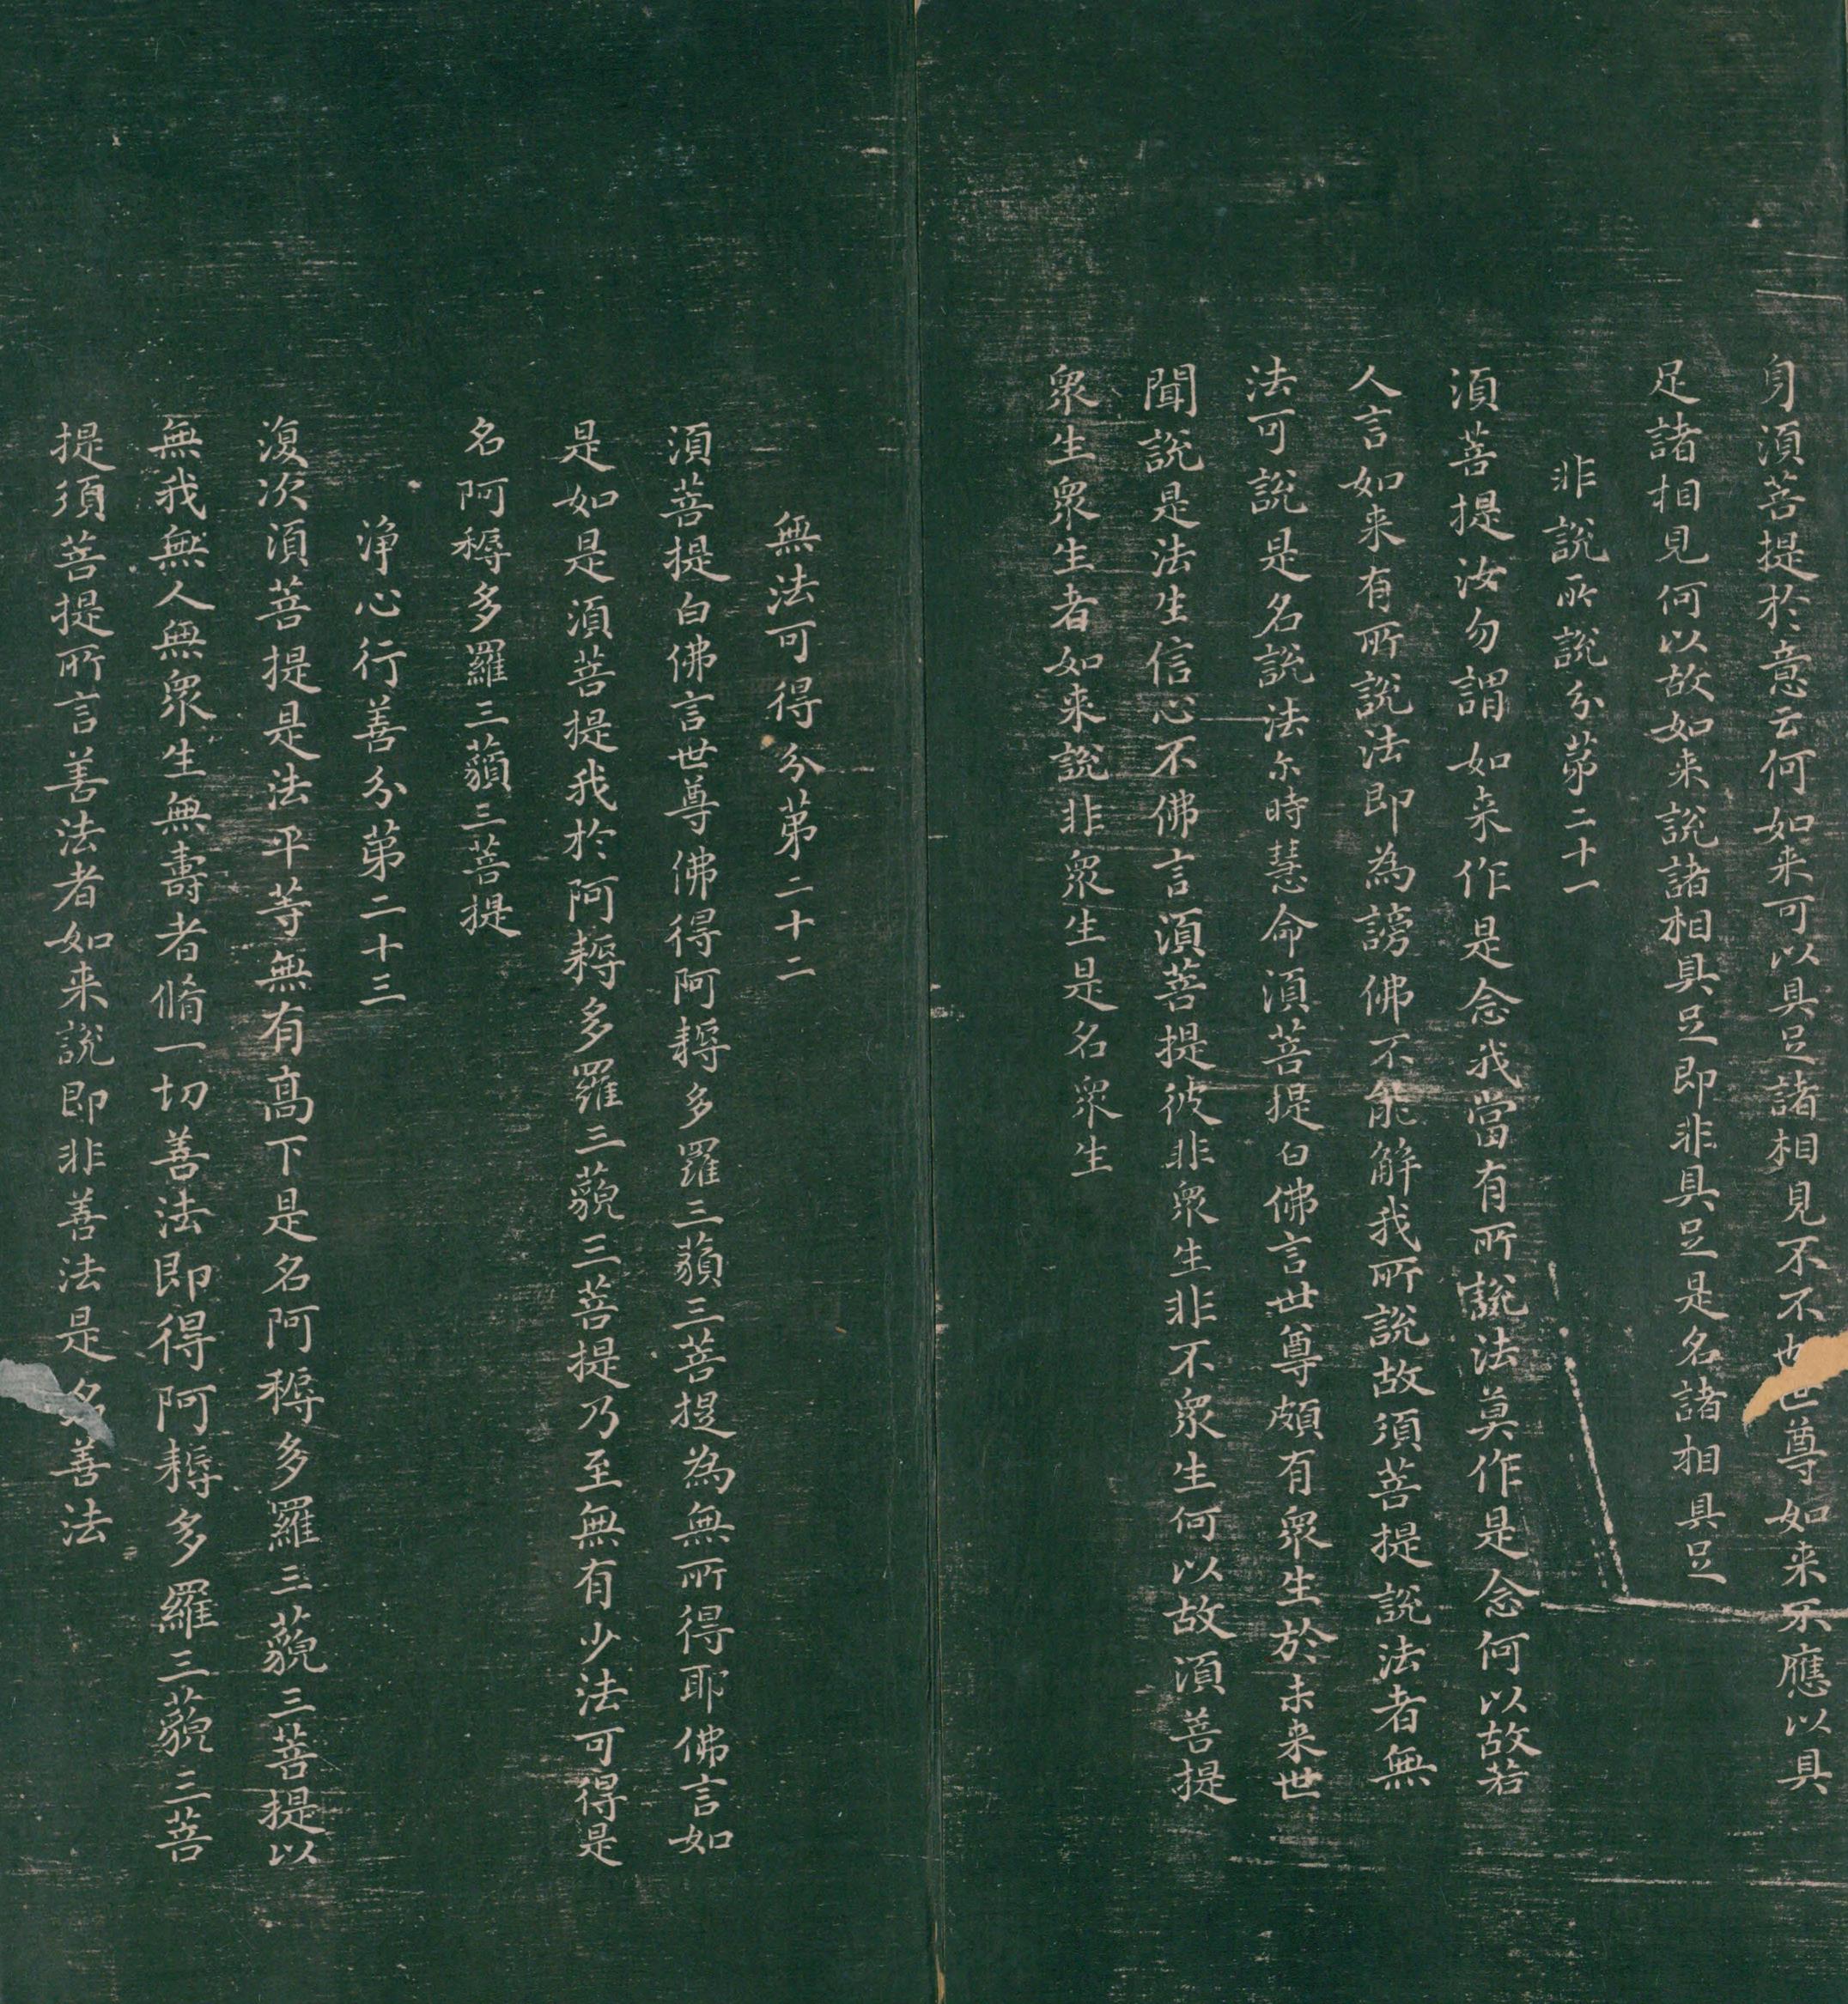 身湏菩提於意云何如来可以具足諸相見不不也世尊如来不應以具
足諸相見何以故如来說諸相具足即非具足是名諸相具足
非說所說分苐二十一
湏菩提汝勿謂如来作是念我當有所說法莫作是念何以故若
人言如来有所說法即為謗佛不能解我所說故須菩提說法者無
法可說是名說法尒時慧命湏菩提白佛言世尊頗有衆生於未来世
聞說是法生信心不佛言湏菩提彼非衆生非不衆生何以故湏菩提
衆生衆生者如来說非衆生是名衆生
無法可得分苐二十二
湏菩提白佛言世尊佛得阿耨多羅三藐三菩提為無所得耶佛言如
是如是湏菩提我於阿耨多羅三藐三菩提乃至無有少法可得是
名阿耨多羅三藐三菩提
淨心行善分苐二十三
復次湏菩提是法平等無有高下是名阿耨多羅三藐三菩提以
無我無人無衆生無壽者脩一切善法即得阿耨多羅三藐三菩
提須菩提所言善法者如来說即非善法是名善法